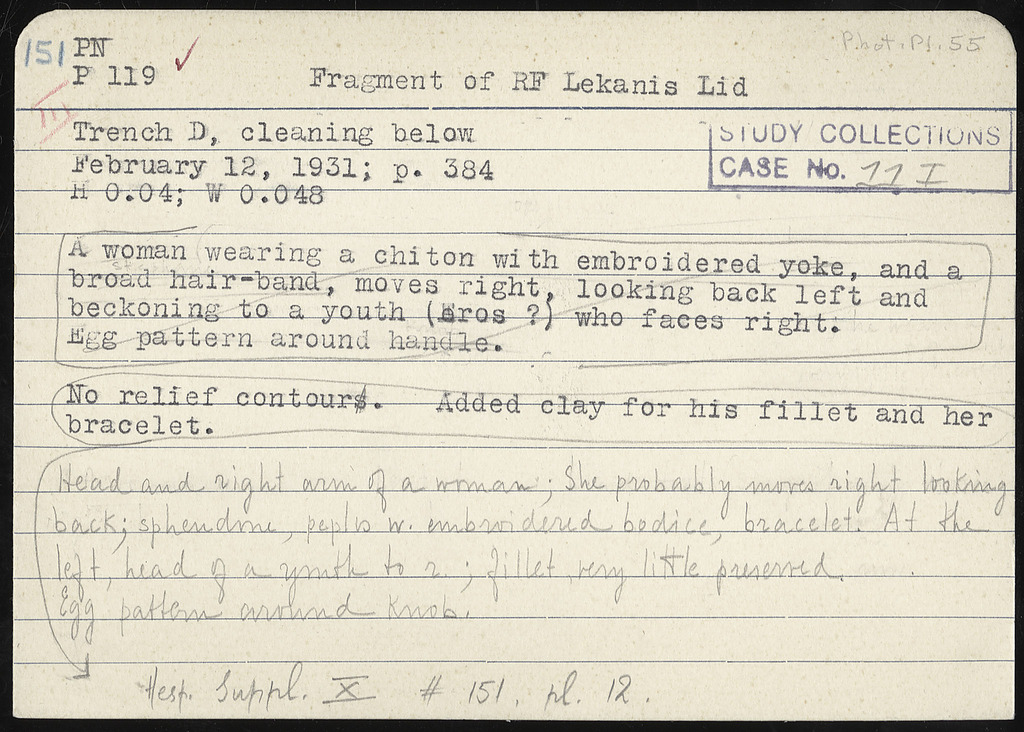 151 PN
Phot. Pl. 55
P 119
Fragment of RF Lekanis Lid
III
Trench D, cleaning below
STUDY COLLECTIONS
February 12, 1931; p. 384
CASE No. 11 I
H 0.04; W 0.048
A woman wearing a chiton with embroidered yoke, and a
broad hair-band, moves right, looking back left and
beckoning to a youth (Eros ?) who faces right.
Egg pattern around handle.
No relief contours. Added clay for his fillet and her
bracelet.
Head and right arm of a woman; She probably moves right looking
back; sphendone, peplos w. embroidered bodice, bracelet. At the
left, head of a youth to r.; fillet, very little preserved.
Egg pattern around knob.
Hesp. Suppl. X # 151, pl. 12.